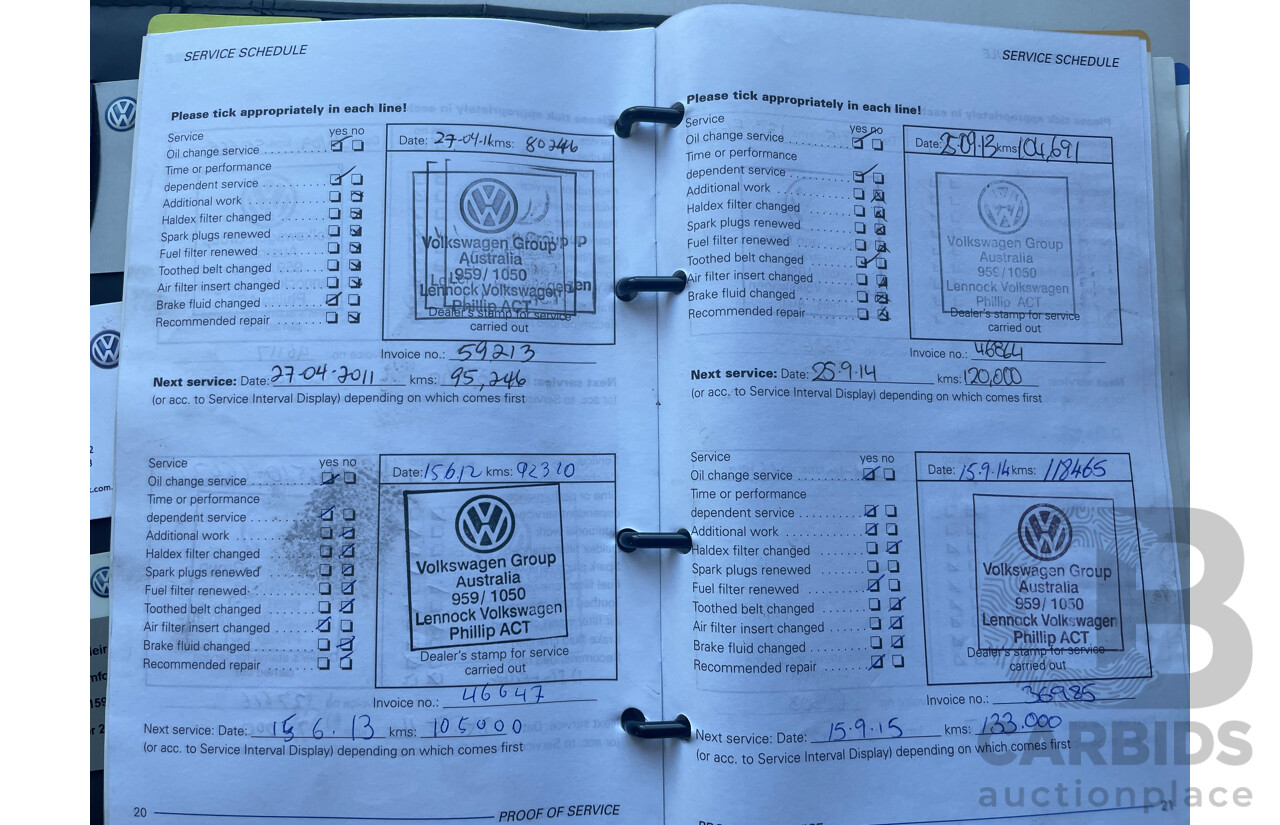 SERVICE SCHEDULE
Please tick appropriately in each line!
Service yes no
Oil change service
Time or performance
dependent service
Additional work
Haldex filter changed
Spark plugs renewed
Fuel filter renewed
Toothed belt changed
Air filter insert changed
Brake fluid changed
Recommended repair
Date: 27-04-11 kms: 80246
Volkswagen Group
Australia
959/1050
Lennock Volkswagen
Phillip ACT
Dealer's stamp for service
carried out
Invoice no.: 59213
Next service: Date: 27-04-2011 kms: 95,246
(or acc. to Service Interval Display) depending on which comes first
Service yes no
Oil change service
Time or performance
dependent service
Additional work
Haldex filter changed
Spark plugs renewed
Fuel filter renewed
Toothed belt changed
Air filter insert changed
Brake fluid changed
Recommended repair
Date: 15 6 12 kms: 92320
Volkswagen Group
Australia
959/1050
Lennock Volkswagen
Phillip ACT
Dealer's stamp for service
carried out
Invoice no.: 46647
Next service: Date: 15.6.13 kms: 105000
(or acc. to Service Interval Display) depending on which comes first
20 PROOF OF SERVICE
SERVICE SCHEDULE
Please tick appropriately in each line!
Service yes no
Oil change service
Time or performance
dependent service
Additional work
Haldex filter changed
Spark plugs renewed
Fuel filter renewed
Toothed belt changed
Air filter insert changed
Brake fluid changed
Recommended repair
Date: 25.09.13 kms: 104,691
Volkswagen Group
Australia
959/1050
Lennock Volkswagen
Phillip ACT
Dealer's stamp for service
carried out
Invoice no.: 46864
Next service: Date: 25.9.14 kms: 120,000
(or acc. to Service Interval Display) depending on which comes first
Service yes no
Oil change service
Time or performance
dependent service
Additional work
Haldex filter changed
Spark plugs renewed
Fuel filter renewed
Toothed belt changed
Air filter insert changed
Brake fluid changed
Recommended repair
Date: 15.9.14 kms: 118465
Volkswagen Group
Australia
959/1050
Lennock Volkswagen
Phillip ACT
Dealer's stamp for service
carried out
Invoice no.: 36985
Next service: Date: 15.9.15 kms: 133.000
(or acc. to Service Interval Display) depending on which comes first
21
CARBIDS
auctionplace